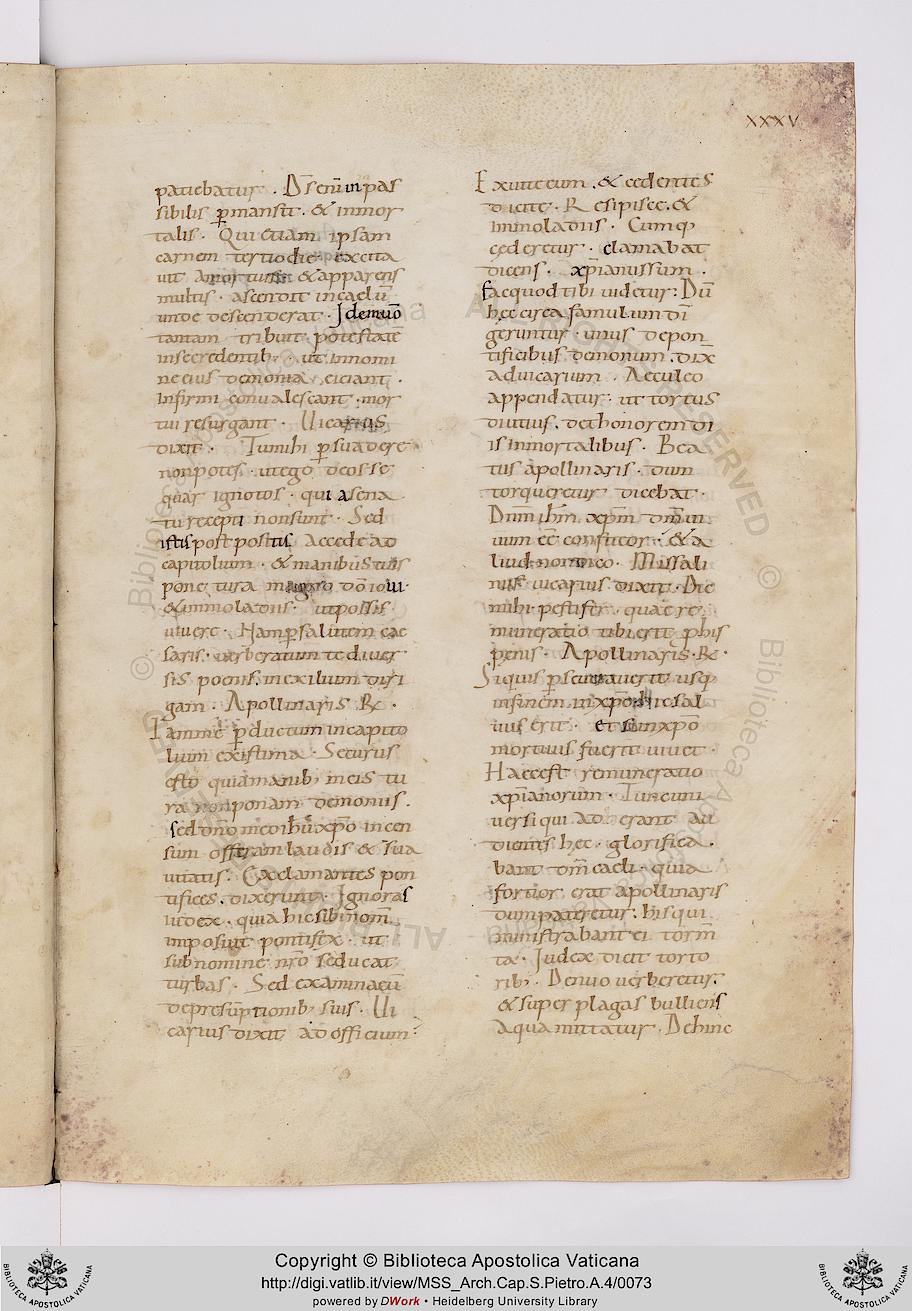 XXXV
patiebatur. D̄s enim inpas
sibilis p̄mansit. & inmor
talis. Qui etiam ipsam
carnem tertio die excita
uit a mortuis & apparens
multis. ascendit in caelū
unde descenderat. Idem uō
tantam tribuit potestatē
in se credentib; ut in nomi
ne eius demonia eiciant.
infirmi conualescant. mor
tui resurgant. Uicarius
dixit. Tu mihi p̄suadere
non potes. ut ego deos se
quar ignotos. qui a sena
tu recepti non sunt. Sed
istis postpositis. accede ad
capitolium. & manibus tuis
pone tura magno dō ioui
& immola diis. ut possis
uiuere. Nam p̄ salutem cae
saris. uerberatum te diuer
sis poenis. in exilium diri
gam. Apollinaris R̄.
Iam me p̄ductum in capito
lium existima. Securus
esto quia manib; meis tu
ra non ponam demoniis.
sed dn̄o meo ih̄u xp̄o incen
sum offeram laudis & sua
uitatis. Exclamantes pon
tifices. dixerunt. Ignoras
iudex. quia hic sibi nom̄
imposuit pontifex. ut
sub nomine nr̄o seducat
turbas. Sed examina eū
de presūptionib; suis. Ui
carius dixit ad officium
Exuite eum. & cedentes
dicite. Resipisce. &
immola diis. Cumq;
cederetur. clamabat
dicens. xp̄ianus sum.
fac quod tibi uidetur. Dū
hec circa famulum dī
geruntur. unus de pon
tificibus demonum. dix̄
ad uicarium. Aeculeo
appendatur. ut tortus
diutius. det honorem di
is inmortalibus. Bea
tus apollinaris. dum
torqueretur dicebat.
Dn̄m ih̄m xp̄m dm̄ ui
uum eē confiteor. & a
liud non dico. Missali
nus uicarius dixit. Dic
mihi pestifer. quae re
muneratio tibi erit p̄ his
penis. Apollinaris. R̄.
Siquis p̄seuerauerit usq;
in finem in xp̄o. hic sal
uus erit. et si in xp̄o
mortuus fuerit uiuet.
Haec est remuneratio
xp̄ianorum. Tunc uni
uersi qui ad erant au
dientes hec. glorifica
bant dm̄ caeli. quia
fortior erat apollinaris
dum pateretur. his qui
ministrabant ei torm̄
ta. Iudex dicit torto
rib; Denuo uerberetur.
& super plagas bulliens
aqua mittatur. Dehinc
Copyright © Biblioteca Apostolica Vaticana
http://digi.vatlib.it/view/MSS_Arch.Cap.S.Pietro.A.4/0073
powered by DWork • Heidelberg University Library